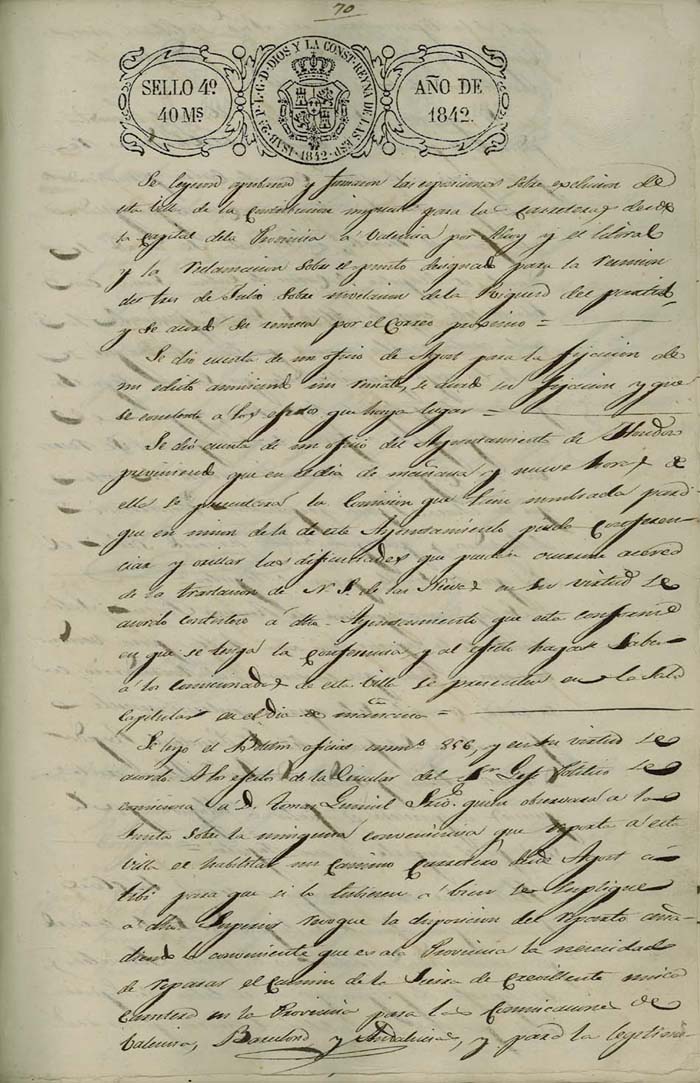 70
SELLO 4º
40 Mˢ
ISAB. 2ª P. L. G. D. DIOS Y LA CONST. REYNA DE LAS ESP. 1842
AÑO DE
1842.
Se leyeron aprobaron y firmaron las esposiciones sobre exclusion de
esta villa de la Contribucion impuesta para la Carretera desde
la Capital dela Provincia á Valencia por Alcoy y el litoral
y la reclamacion sobre el punto designado para la reunion
del tres de Julio sobre nivelacion de la Riqueza del partido
y se acordó su remesa por el Correo proximo =
Se dio cuenta de un oficio de Agost para la fijacion de
un edicto anunciando un remate, se acordó su fijacion y que
se conteste a los efectos que haya lugar =
Se dió cuenta de un oficio del Ayuntamiento de
previniendo que en el dia de mañana y nueve horas de
ella se presentará la Comision que tiene nombrada para
que en union de la de este Ayuntamiento pueda Conferen-
ciar y orillar las dificultades que puedan ocurrir acerca
de la traslacion de N. S. de las Nieves en su virtud se
acordó contestar á dho Ayuntamiento que esta conforme
en que se tenga la conferencia y al efecto hagase saber
á los comisionados de esta Villa se presenten en la Sala
Capitular en el dia de mañana =
Se leyó el Boletin oficial num.º 856, y en su virtud se
acordó A los efectos de la Circular del Sr. Gefe Politico se
comisiona a D. Tomas Sind.º quien observará a la
Junta sobre la ninguna conveniencia que reporta á esta
Villa el habilitar un Camino Carretero desde Agost á
Ibi para que si lo tubieren á bien se suplique
a dho Superior revoque la disposicion del reparto aña-
diendo lo conveniente que es ala Provincia la necesidad
de reparar el Camino de la Sierra de Crevillente unico
Carretero en la Provincia para las Comunicaciones de
Valencia, Barcelona y Andalucia, y para la legitima-